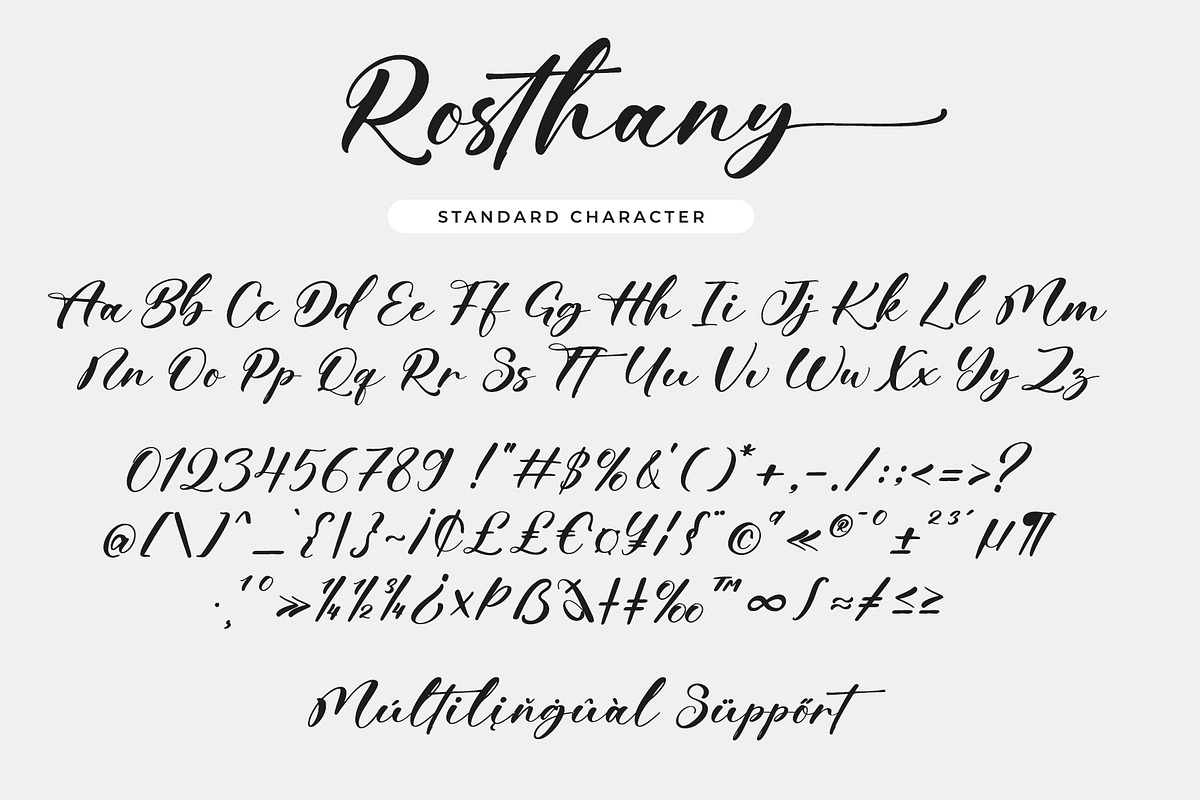 Rosthany
STANDARD CHARACTER
Aa Bb Cc Dd Ee Ff Gg Hh Ii Jj Kk Ll Mm
Nn Oo Pp Qq Rr Ss Tt Uu Vv Ww Xx Yy Zz
0123456789 !"#$%&'()*+,-./:;<=>?
@[\]^_`{|}~¡¢£₤€¤¥¦§¨©ª«®¯º±²³´µ¶
·¸¹º»¼½¾¿×Þßð†‡‰™∞∫≈≠≤≥
Múltilįňġûàl Süppőrt